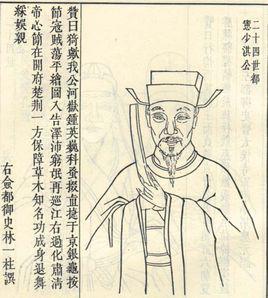 二十四世都
憲少淇公
贊曰猗歟我公河嶽鍾英巍科蚤掇直捷于京銀鹺按
節寇賊蕩平繪圖入告澤沛窮氓再巡江右過化肅清
帝心簡在開府楚荊一方保障草木知名功成身退舞
綵娛親
右僉都御史林一柱譔